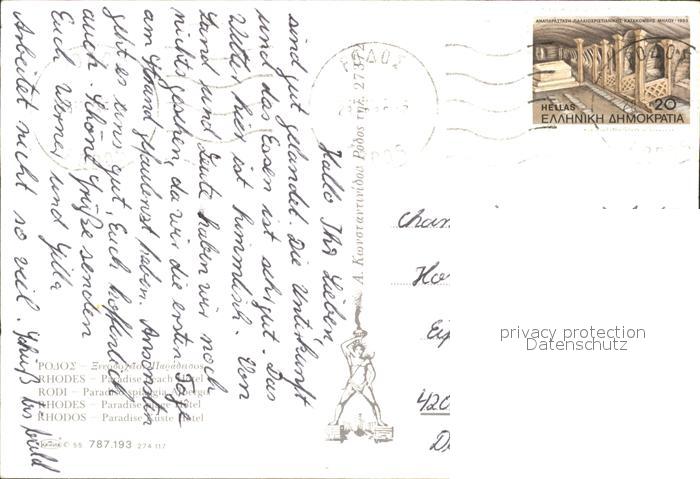 ΑΝΑΠΑΡΑΣΤΑΣΗ ΠΑΛΑΙΟΧΡΙΣΤΙΑΝΙΚΗΣ ΚΑΤΑΚΟΜΒΗΣ ΜΗΛΟΥ - 1985
HELLAS 20
ΕΛΛΗΝΙΚΗ ΔΗΜΟΚΡΑΤΙΑ
ΡΟΔΟΣ
Hallo Ihr Lieben
sind gut gelandet. Die Unterkunft
und das Essen ist sehr gut. Das
Wetter hier ist himmlisch. Von
Land und Leute haben wir noch
nichts gesehen, da wir die ersten Tage
am Strand gefaulenzt haben. Ansonsten
geht es uns gut, Euch hoffentlich
auch. Schöne Grüße senden
Euch Werner und Gilla
Arbeitet nicht so viel. Tschüß bis bald
Α. Κωνσταντινίδου Ρόδος τηλ.
privacy protection
Datenschutz
420
ΡΟΔΟΣ – Ξενοδοχείο Παράδεισος
RHODES – Paradise Beach Hotel
RODI – Paradise spiaggia albergo
RHODES – Paradise Hotel
RHODOS – Paradise Küste Hotel
© 55 787.193 274 117